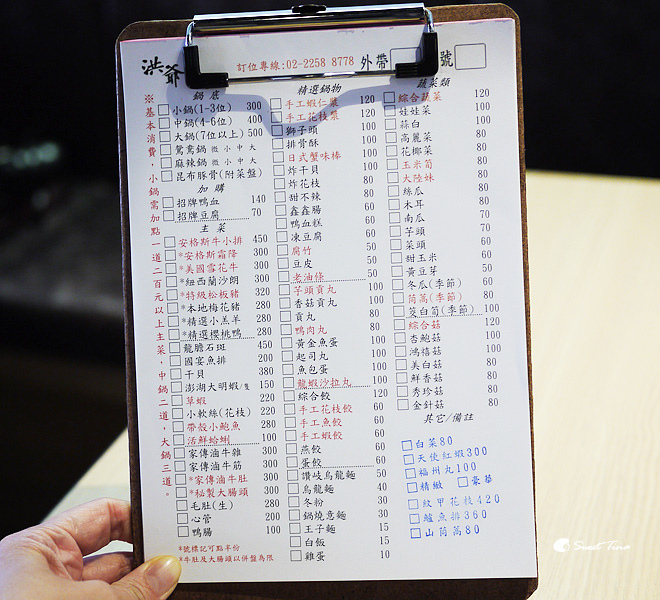 洪爺
訂位專線:02-2258 8778 外帶 號
※基本消費，小鍋需加點一道二百元以上主菜，中鍋二道，大鍋三道。
鍋底
小鍋(1-3位) 300
中鍋(4-6位) 400
大鍋(7位以上) 500
鴛鴦鍋 微小中大
麻辣鍋 微小中大
昆布豚骨(附菜盤)
加購
招牌鴨血 140
招牌豆腐 70
主菜
*安格斯牛小排 450
*安格斯霜降 300
*美國雪花牛 300
*紐西蘭沙朗 300
*特級松板豬 320
*本地梅花豬 280
*精選小羔羊 280
*精選櫻桃鴨 280
龍膽石斑 450
國宴魚排 200
干貝 380
澎湖大明蝦/隻 150
草蝦 220
小軟絲(花枝) 220
帶殼小鮑魚 280
活鮮蛤蜊 100
家傳滷牛雜 300
家傳滷牛筋 300
*家傳滷牛肚 300
*秘製大腸頭 300
毛肚(生) 280
心管 200
鴨腸 100
*號標記可點半份
*牛肚及大腸頭以併盤為限
精選鍋物
手工蝦仁漿 120
手工花枝漿 100
獅子頭 100
排骨酥 100
日式蟹味棒 100
炸干貝 100
炸花枝 80
甜不辣 80
鑫鑫腸 60
鴨血糕 60
凍豆腐 60
腐竹 50
豆皮 50
老油條 50
芋頭貢丸 100
香菇貢丸 100
貢丸 80
鴨肉丸 80
黃金魚蛋 100
起司丸 100
魚包蛋 100
龍蝦沙拉丸 100
綜合餃 120
手工花枝餃 60
手工魚餃 60
手工蝦餃 60
燕餃 60
蛋餃 60
讚岐烏龍麵 50
烏龍麵 40
冬粉 30
鍋燒意麵 30
王子麵 15
白飯 15
雞蛋 10
蔬菜類
綜合蔬菜 120
娃娃菜 100
蒜白 100
高麗菜 80
花椰菜 80
玉米筍 80
大陸妹 80
絲瓜 80
木耳 80
南瓜 70
芋頭 80
菜頭 60
甜玉米 60
黃豆芽 50
冬瓜(季節) 60
茼蒿(季節) 80
茭白筍(季節) 100
綜合菇 120
杏鮑菇 100
鴻禧菇 100
美白菇 80
鮮香菇 80
秀珍菇 80
金針菇 80
其它/備註
白菜80
天使紅蝦300
福州丸100
精緻 豪華
紋甲花枝420
鱸魚排360
山茼蒿80
Sweet Tina